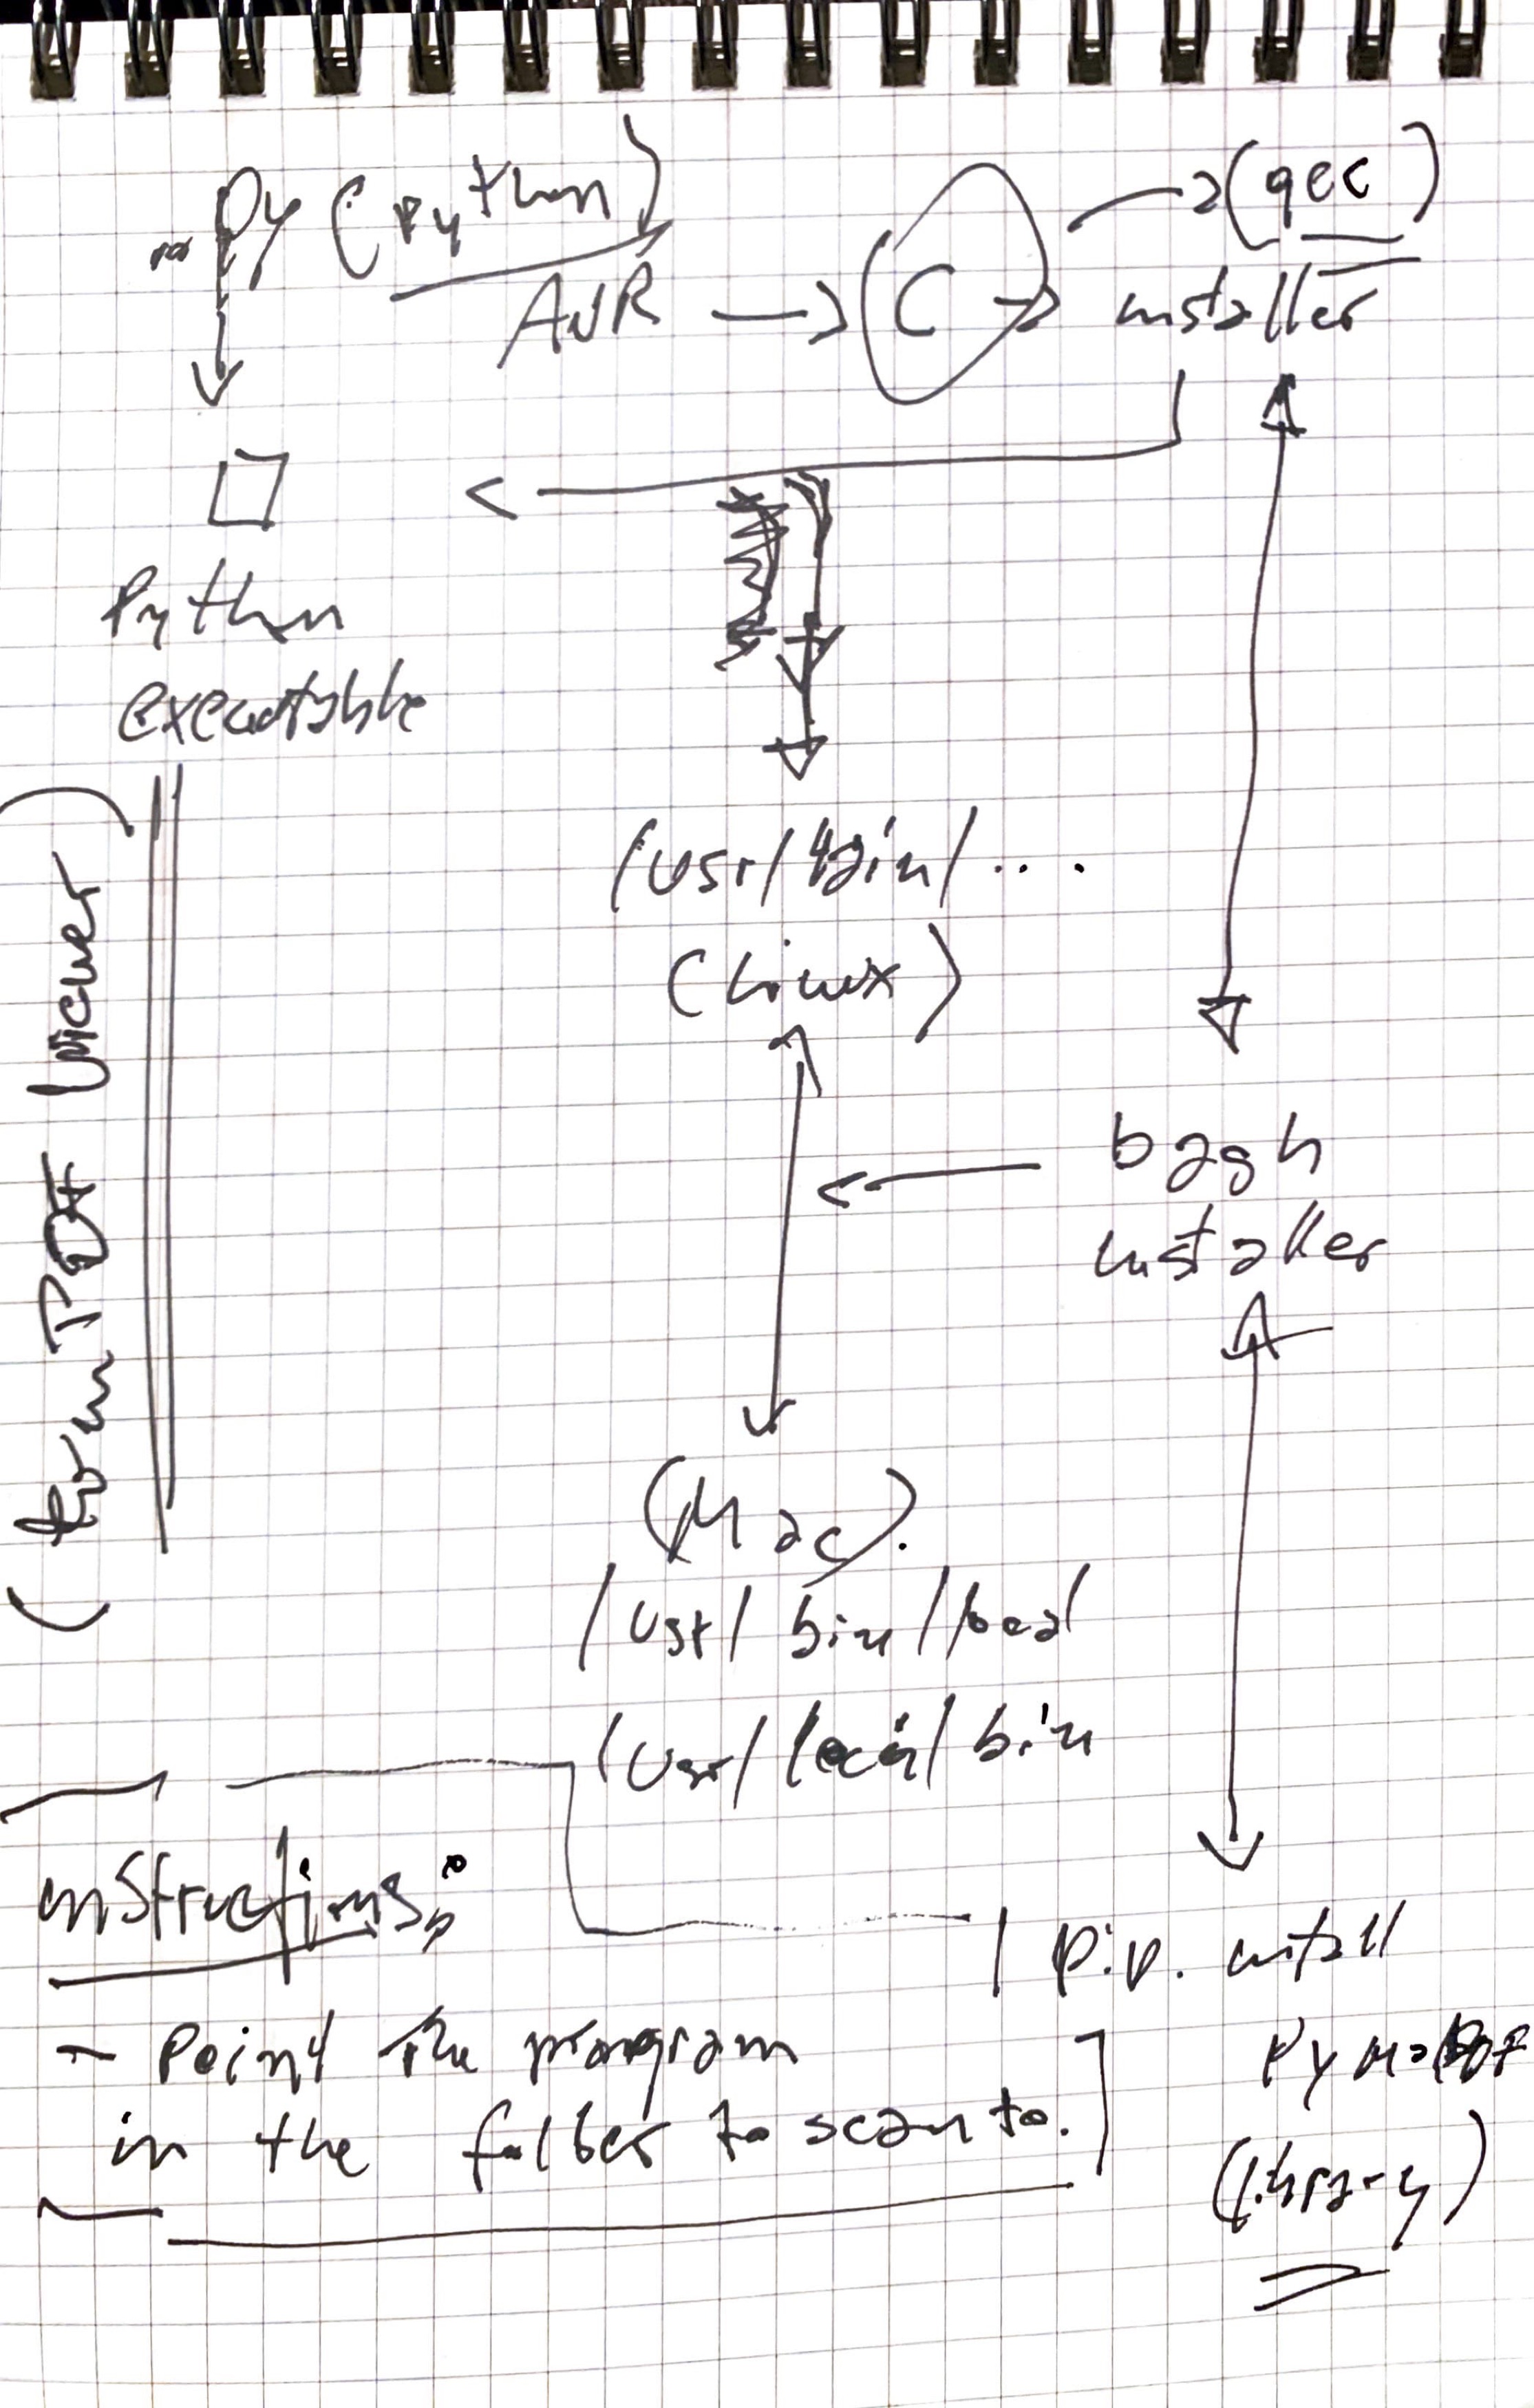 Py (Python)
→ (gcc)
AVR → (C → installer
Python
executable
/usr/bin/....
(Linux)
bash
installer
(Mac).
/usr/bin/local
/usr/local/bin
(term PDF Viewer)
instructions:
- Point the program
in the folder to scan to.
pip. install
PyMuPDF
(library)